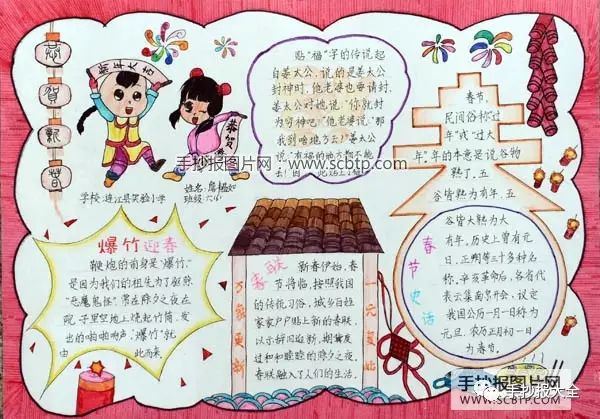 恭贺新春
新年大吉
恭贺
学校:连江县实验小学
姓名:
班级:六
贴“福”字的传说起
自姜太公,说的是姜太公
封神时,他老婆也要请封,
姜太公对她说:“你就封
为穷神吧!”他老婆说:“那
我到啥地方去!”姜太公
说:“有福的地方都不能
去!”因
手抄报图片网 www.scbtp.com
春节,
民间俗称过
年”或“过大
年”。年的本意是说谷物
熟了。五
谷皆熟为有年,五
谷皆大熟为大
有年。历史上曾有元
日、正朔等三十多种名
称。辛亥革命后,各省代
表云集南京开会,议定
我国公历一月一日称为
元旦,农历正月初一日
为春节。
春节史话
爆竹迎春
鞭炮的前身是“爆竹,”
是因为我们的祖先为了驱熬
“恶魔鬼怪”常在除夕之夜在
院子里空地上烧起竹筒,发
出的啪啪响声,“爆竹”就
由此而来。
春联
新春伊始,春
节将临,按照我国
的传统习俗,城乡百姓
家家户户贴上新的春联,
以示辞旧迎新,期翼度
过和和睦睦的除夕之夜。
春联融入了人们的生活。
万象更新
一元复始
手抄报图片网
www.scbtp.com
手抄报大全